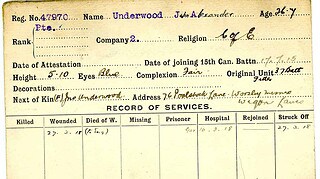 Reg. No. 4797C Name Underwood J. Alexander Age 26-7
Rank Pte. Company 2. Religion C of E
Date of Attestation Date of joining 15th Can. Battn.
Height 5-10 Eyes Blue Complexion Fair Original Unit
Decorations
Next of Kin Underwood Address 76 Lane Worsley
Wigan Lancs
RECORD OF SERVICES.
Killed Wounded Died of W. Missing Prisoner Hospital Rejoined Struck Off
27. 2. 18 10. 3. 18 27. 2. 18